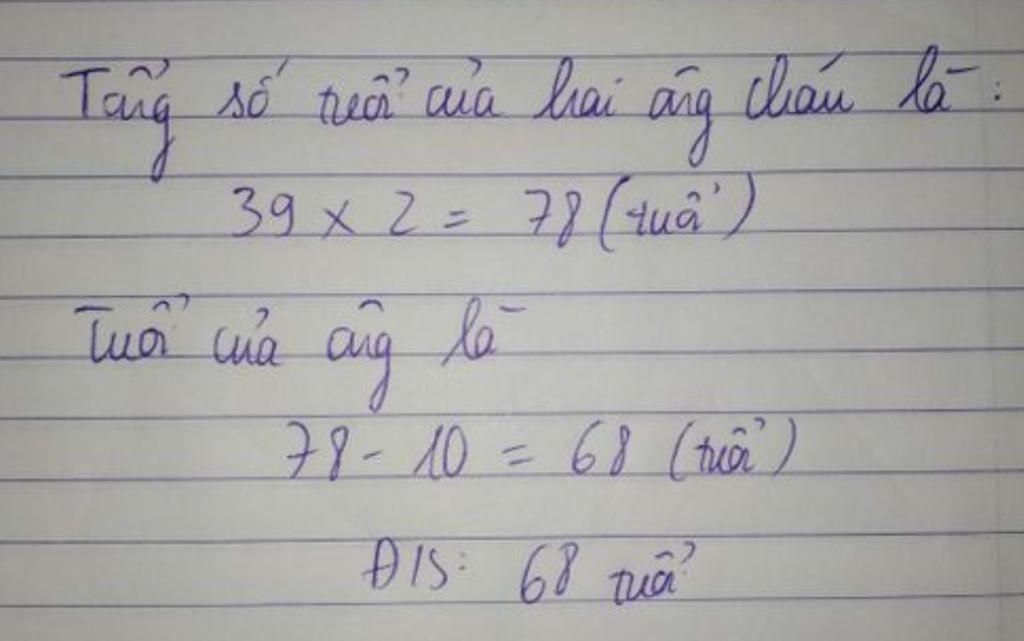 Tổng số tuổi của hai ông cháu là:
39 x 2 = 78 (tuổi)
Tuổi của ông là
78 - 10 = 68 (tuổi)
Đ/S: 68 tuổi